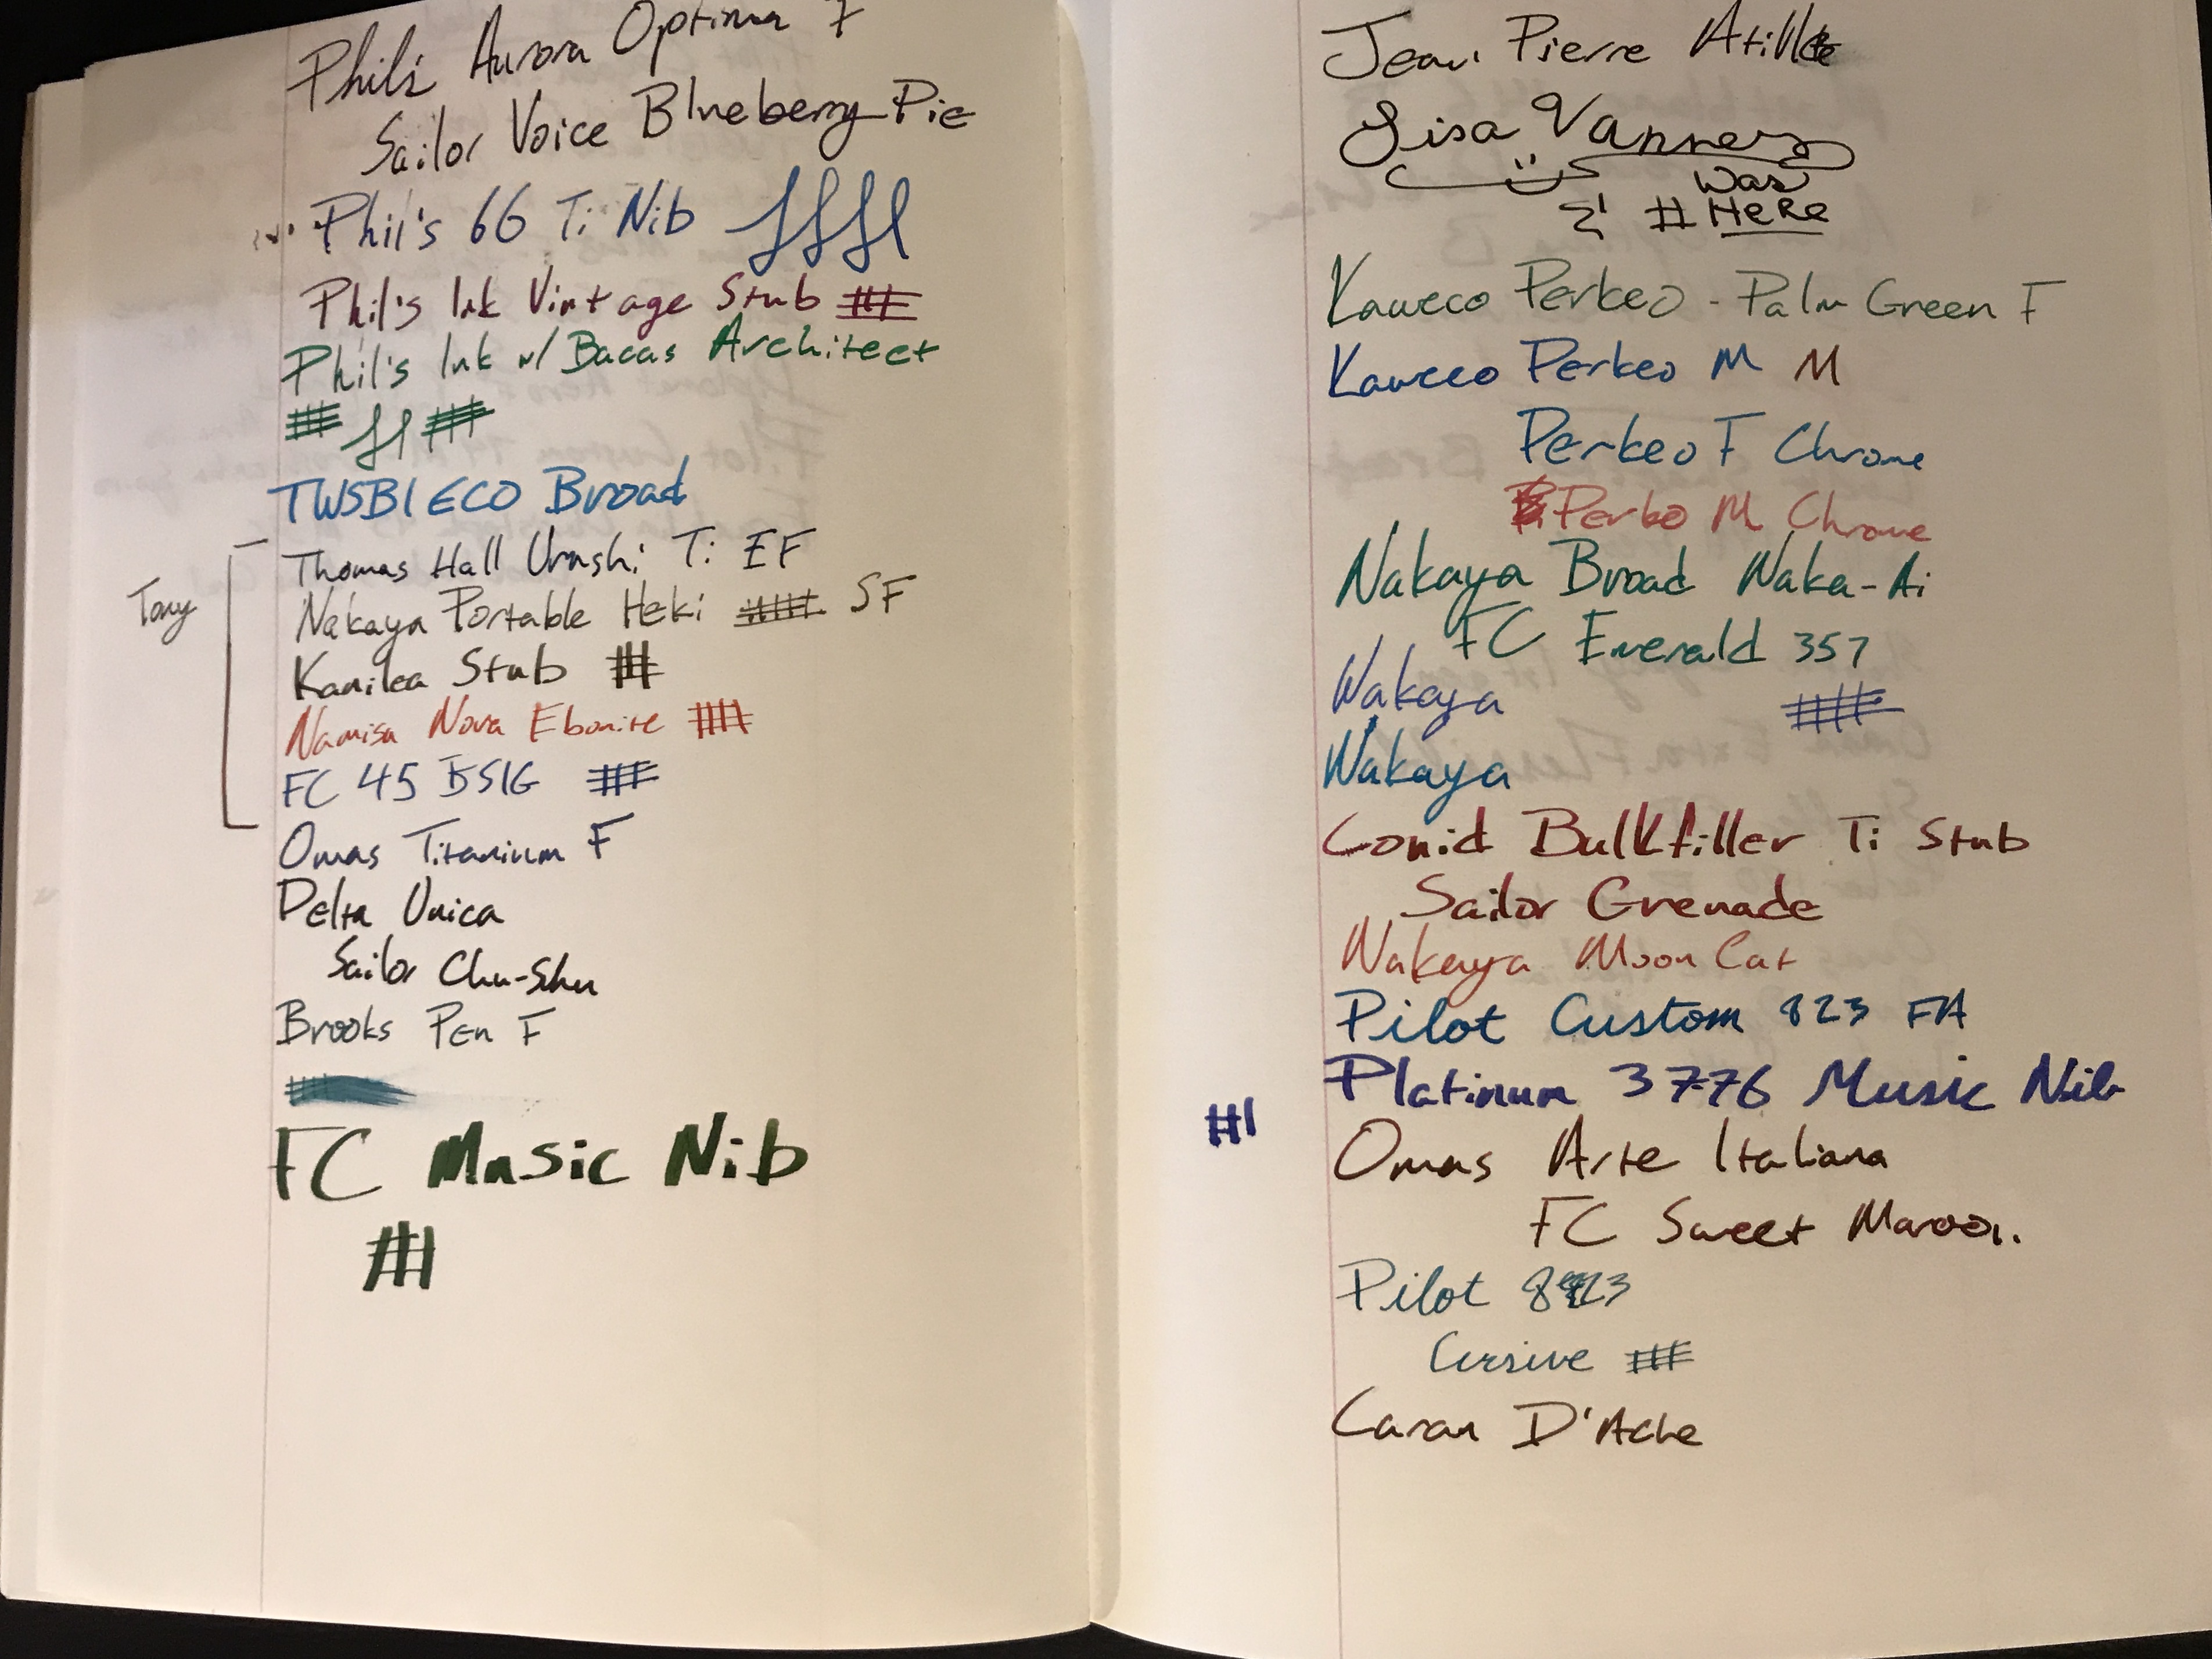 Phil's Aurora Optima F
Sailor Voice Blueberry Pie
Phil's 66 Ti Nib
Phil's Ink Vintage Stub
Phil's Ink w/ Bacas Architect
TWSBI ECO Broad
Tony
Thomas Hall Urushi Ti EF
Nakaya Portable Heki SF
Kanilea Stub
Namisu Nova Ebonite
FC 45 BSIG
Omas Titanium F
Delta Unica
Sailor Chu-Shu
Brooks Pen F
FC Music Nib
Jean Pierre
Lisa Vanness
was
# HERE
Kaweco Perkeo - Palm Green F
Kaweco Perkeo M M
Perkeo F Chrome
Perko M Chrome
Nakaya Broad Waka-Ai
FC Emerald 357
Nakaya
Nakaya
Conid Bulkfiller Ti Stub
Sailor Grenade
Nakaya Moon Cat
Pilot Custom 823 FA
Platinum 3776 Music Nib
Omas Arte Italiana
FC Sweet Maroon
Pilot 823
Cursive
Caran D'Ache